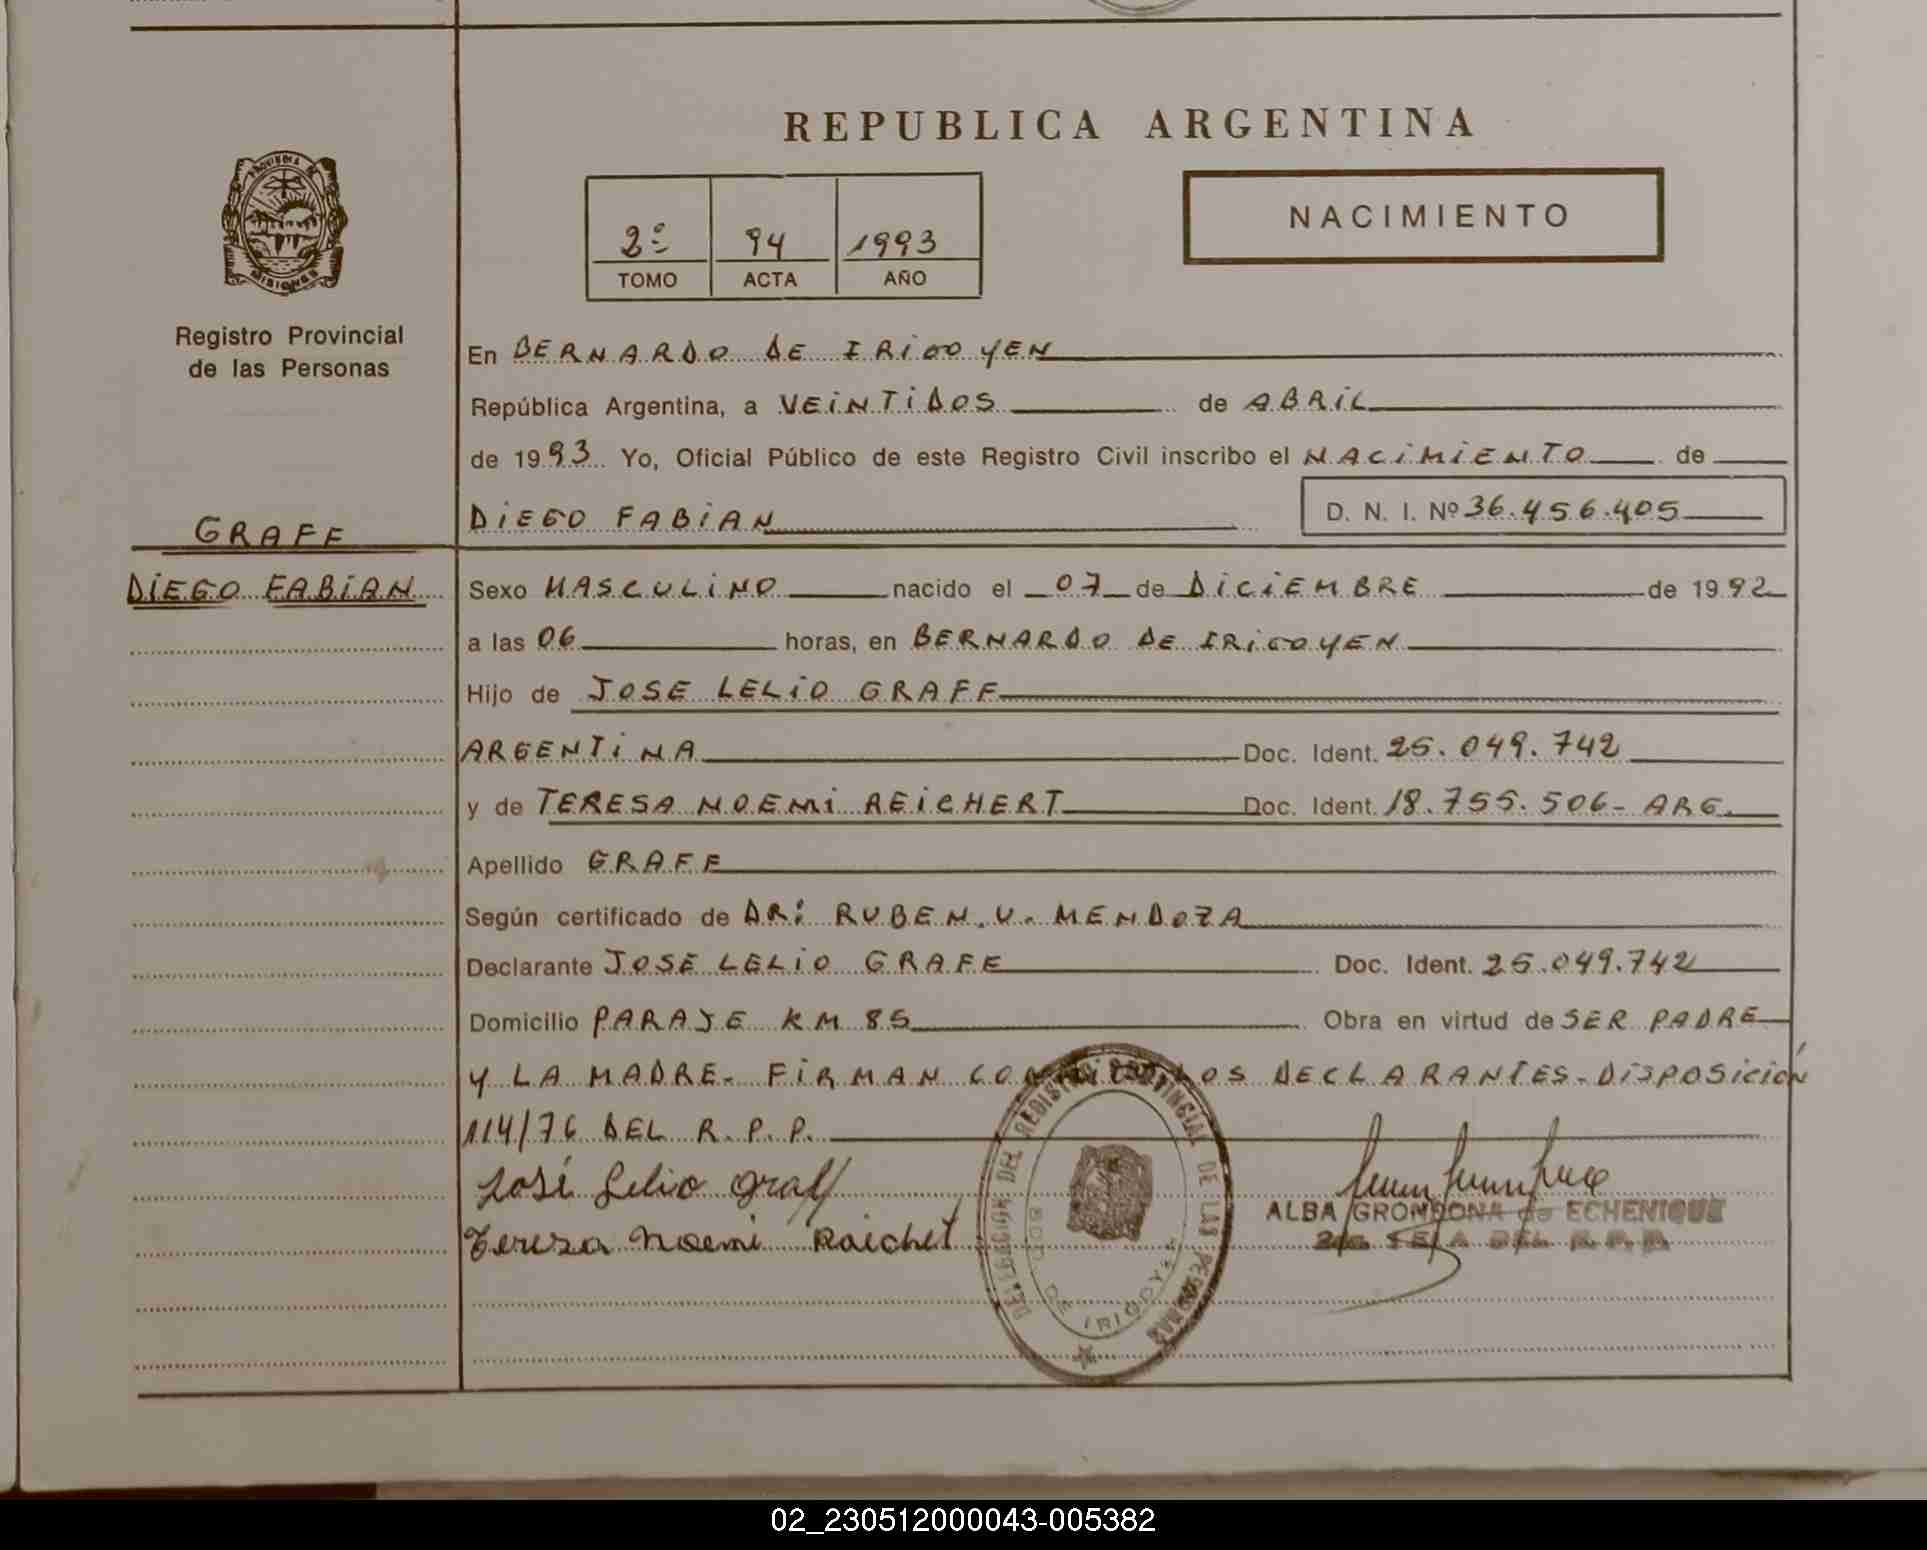 REPUBLICA ARGENTINA
PROVINCIA DE
MISIONES
Registro Provincial
de las Personas
2º 94 1993
TOMO ACTA AÑO
NACIMIENTO
En BERNARDO DE IRIGOYEN
República Argentina, a VEINTIDOS de ABRIL
de 1993 Yo, Oficial Público de este Registro Civil inscribo el NACIMIENTO de
DIEGO FABIAN D. N. I. Nº 36.456.405
GRAFF
DIEGO FABIAN
Sexo MASCULINO nacido el 07 de DICIEMBRE de 1992
a las 06 horas, en BERNARDO DE IRIGOYEN
Hijo de JOSE LELIO GRAFF
ARGENTINA Doc. Ident. 25.049.742
y de TERESA NOEMI REICHERT Doc. Ident. 18.755.506- ARG.
Apellido GRAFF
Según certificado de DR: RUBEN.U. MENDOZA
Declarante JOSE LELIO GRAFF Doc. Ident. 25.049.742
Domicilio PARAJE KM 85 Obra en virtud de SER PADRE
Y LA MADRE- FIRMAN CONMIGO LOS DECLARANTES-DISPOSICIÓN
114/76 DEL R.P.P.
José Lelio Graff
Tereza Noemi Raichet
DELEGACION DEL REGISTRO PROVINCIAL DE LAS PERSONAS
BDO. DE IRIGOYEN
ALBA GRONDONA de ECHENIQUE
DEL R.P.P.
02_230512000043-005382